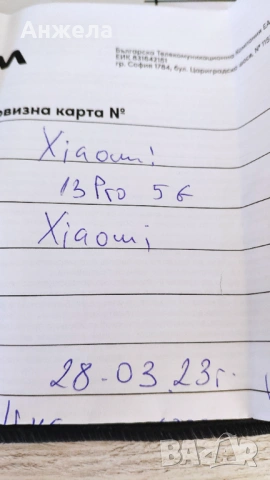 Анжела
Българска Телекомуникационна Компания ЕА
ЕИК 831642181
гр. София 1784, бул. Цариградско шосе, № 115
евизна карта №
Xiaomi
13 Pro 5G
Xiaomi
28.03.23г.
BAZAR